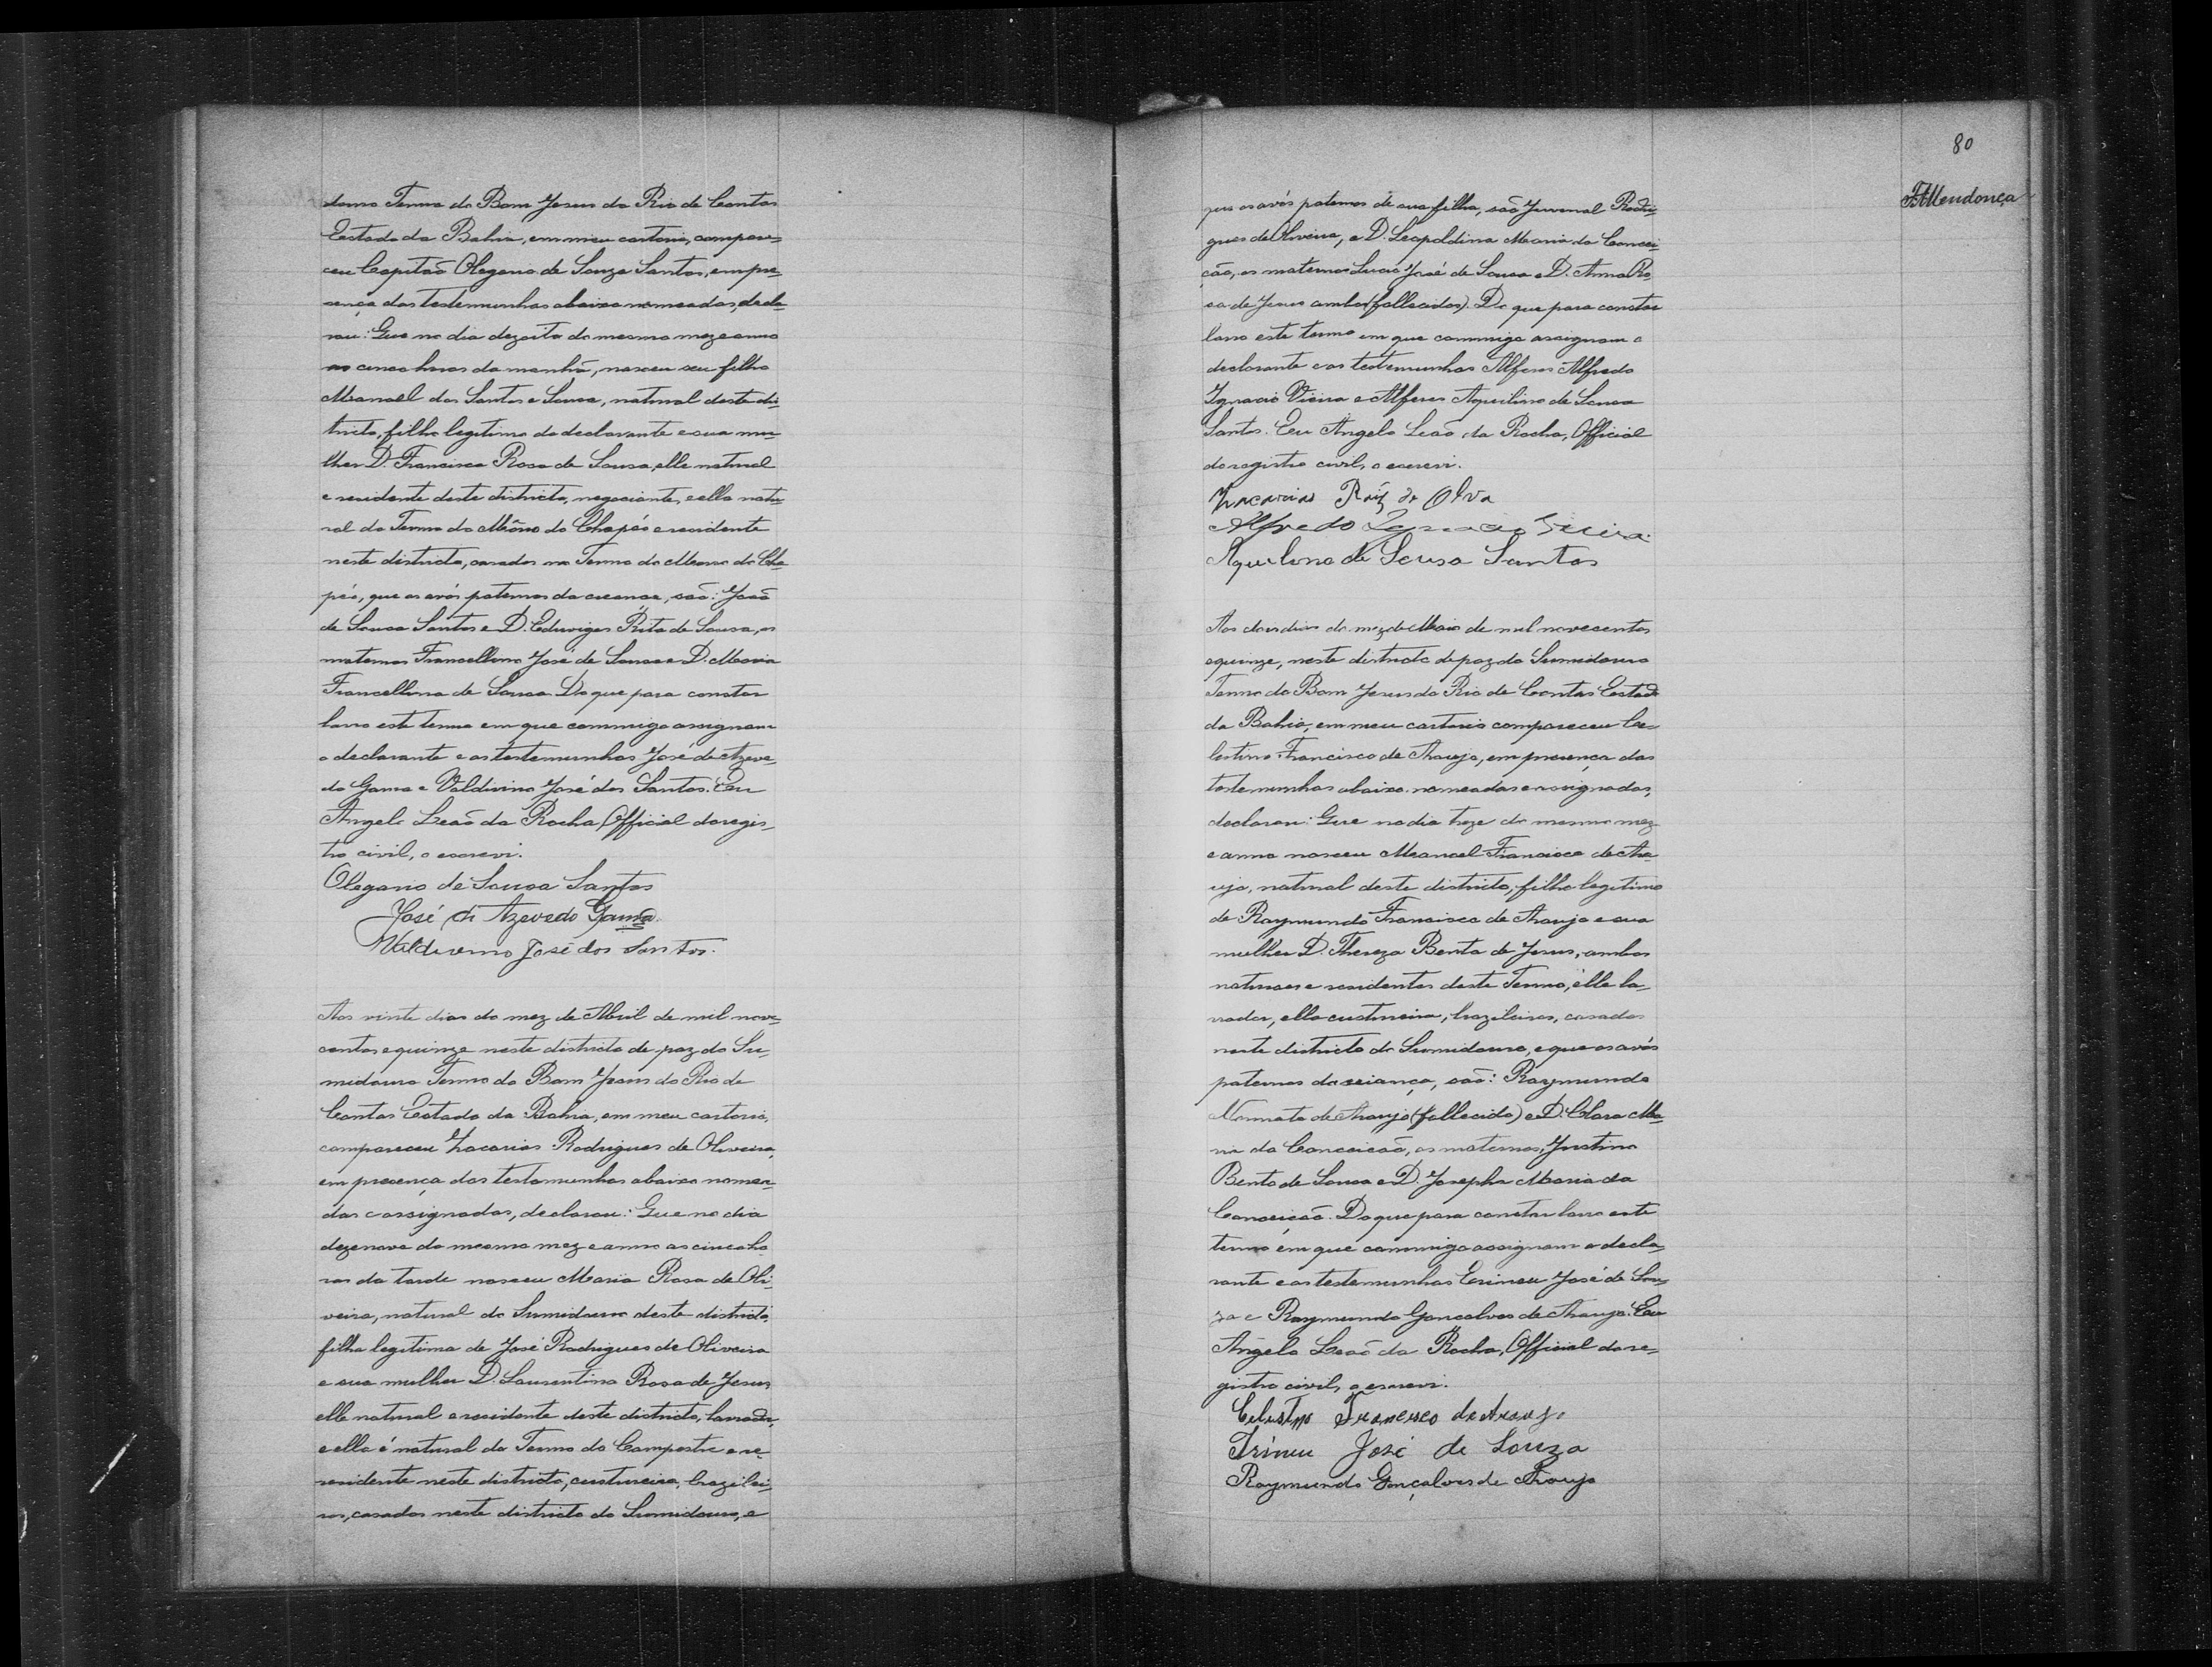 douro Termo do Bom Jesus do Rio de Contas
Estado da Bahia, em meu cartorio, compare-
ceu Capitaõ Olegario de Souza Santos, em pre-
sença das testemunhas abaixo nomeadas, decla-
rou: Que no dia dezoito do mesmo mez e anno
as cinco horas da manhã, nasceu seu filho
Manoel dos Santos e Sousa, natural deste dis-
tricto, filho legitimo do declarante e sua mu-
lher D. Francisca Rosa de Sousa, elle natural
e residente deste districto, negociante, e ella natu-
ral do Termo do Môrro do Chapéo e residente
neste districto, casados no Termo do Morro do Cha-
péo, que os avós paternos da creança, saõ: Joaõ
de Sousa Santos e D. Eduviges Rita de Sousa, os
maternos Francellino José de Sousa e D. Maria
Francellina de Sousa. Do que para constar
lavro este termo em que commigo assignam
o declarante e as testemunhas José de Azeve-
do Gama e Valdivino José dos Santos. Eu
Angelo Leaõ da Rocha, Official do regis-
tro civil, o escrevi.
Olegario de Sousa Santos
José di Azevedo Gama
Valdivino José dos Santos.
Aos vinte dias do mez de Abril de mil nove-
centos e quinze neste districto de paz do Su-
midouro Termo do Bom Jesus do Rio de
Contas Estado da Bahia, em meu cartorio,
compareceu Zacarias Rodrigues de Oliveira,
em presença das testemunhas abaixo nomea-
das e assignadas, declarou: Que no dia
dezenove do mesmo mez e anno as cinco ho-
ras da tarde nasceu Maria Rosa de Oli-
veira, natural do Sumidouro deste districto,
filha legitima de José Rodrigues de Oliveira
e sua mulher D. Laurentina Rosa de Jesus,
elle natural e residente deste districto, lavrador,
e ella é natural do Termo do Campestre e re-
sidente neste districto, custureira, brazilei-
ros, casados neste districto do Sumidouro, e
80
FAMendonça
que os avós paternos de sua filha, saõ Juvenal Rodri-
gues de Oliveira, e D. Leopoldina Maria da Concei-
ção, os maternos Lucio José de Sousa e D. Anna Ro-
sa de Jesus ambos (fallecidos). Do que para constar
lavro este termo em que commigo assignam o
declarante e as testemunhas Alferes Alfredo
Ignacio Vieira e Alferes Aquilino de Sousa
Santos. Eu Angelo Leaõ da Rocha, Official
do registro civil, o escrevi.
Zacarias Roiz de Olva
Alfredo Ignacio Vieira
Aquilino de Sousa Santos
Aos dias do mez de Maio de mil novecentos
e quinze, neste districto de paz do Sumidouro
Termo do Bom Jesus do Rio de Contas Estado
da Bahia, em meu cartorio compareceu Ce-
lestino Francisco de Araujo, em presença das
testemunhas abaixo nomeadas e assignadas,
declarou: Que no dia treze do mesmo mez
e anno nasceu Manoel Francisco de Ara-
ujo, natural deste districto, filho legitimo
de Raymundo Francisco de Araujo e sua
mulher D. Thereza Benta de Jesus, ambos
naturaes e residentes deste Termo, elle la-
vrador, ella custureira, brazileiros, casados
neste districto do Sumidouro, e que os avós
paternos da criança, saõ: Raymundo
Nonnato de Araujo (fallecido) e D. Clara Ma-
ria da Conceicaõ, os maternos, Justino
Bento de Sousa e D. Josepha Maria da
Conceiçaõ. Do que para constar lavro este
termo em que commigo assignam o decla-
rante e as testemunhas Erineu José de Sou-
za e Raymundo Gonçalves de Araujo. Eu
Angelo Leaõ da Rocha, Official do re-
gistro civil, o escrevi.
Celestino Francisco de Araujo
Irineu José de Souza
Raymundo Gonçalves de Araujo